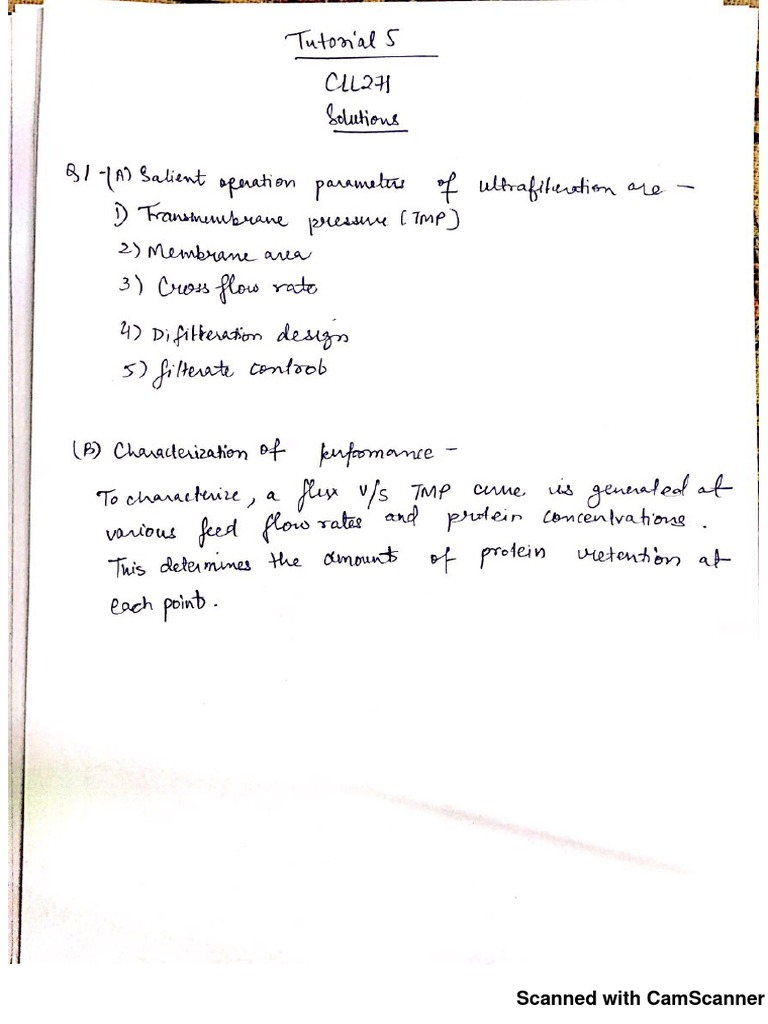 Tutorial 5
CLL271
Solutions
Q1-(A) Salient operation parameters of ultrafilteration are -
1) Transmembrane pressure (TMP)
2) Membrane area
3) Cross flow rate
4) Difilteration design
5) filterate control
(B) Characterization of perfomance -
To characterize, a flux v/s TMP curve is generated at
various feed flow rates and protein concentrations.
This determines the amount of protein retention at
each point.
Scanned with CamScanner